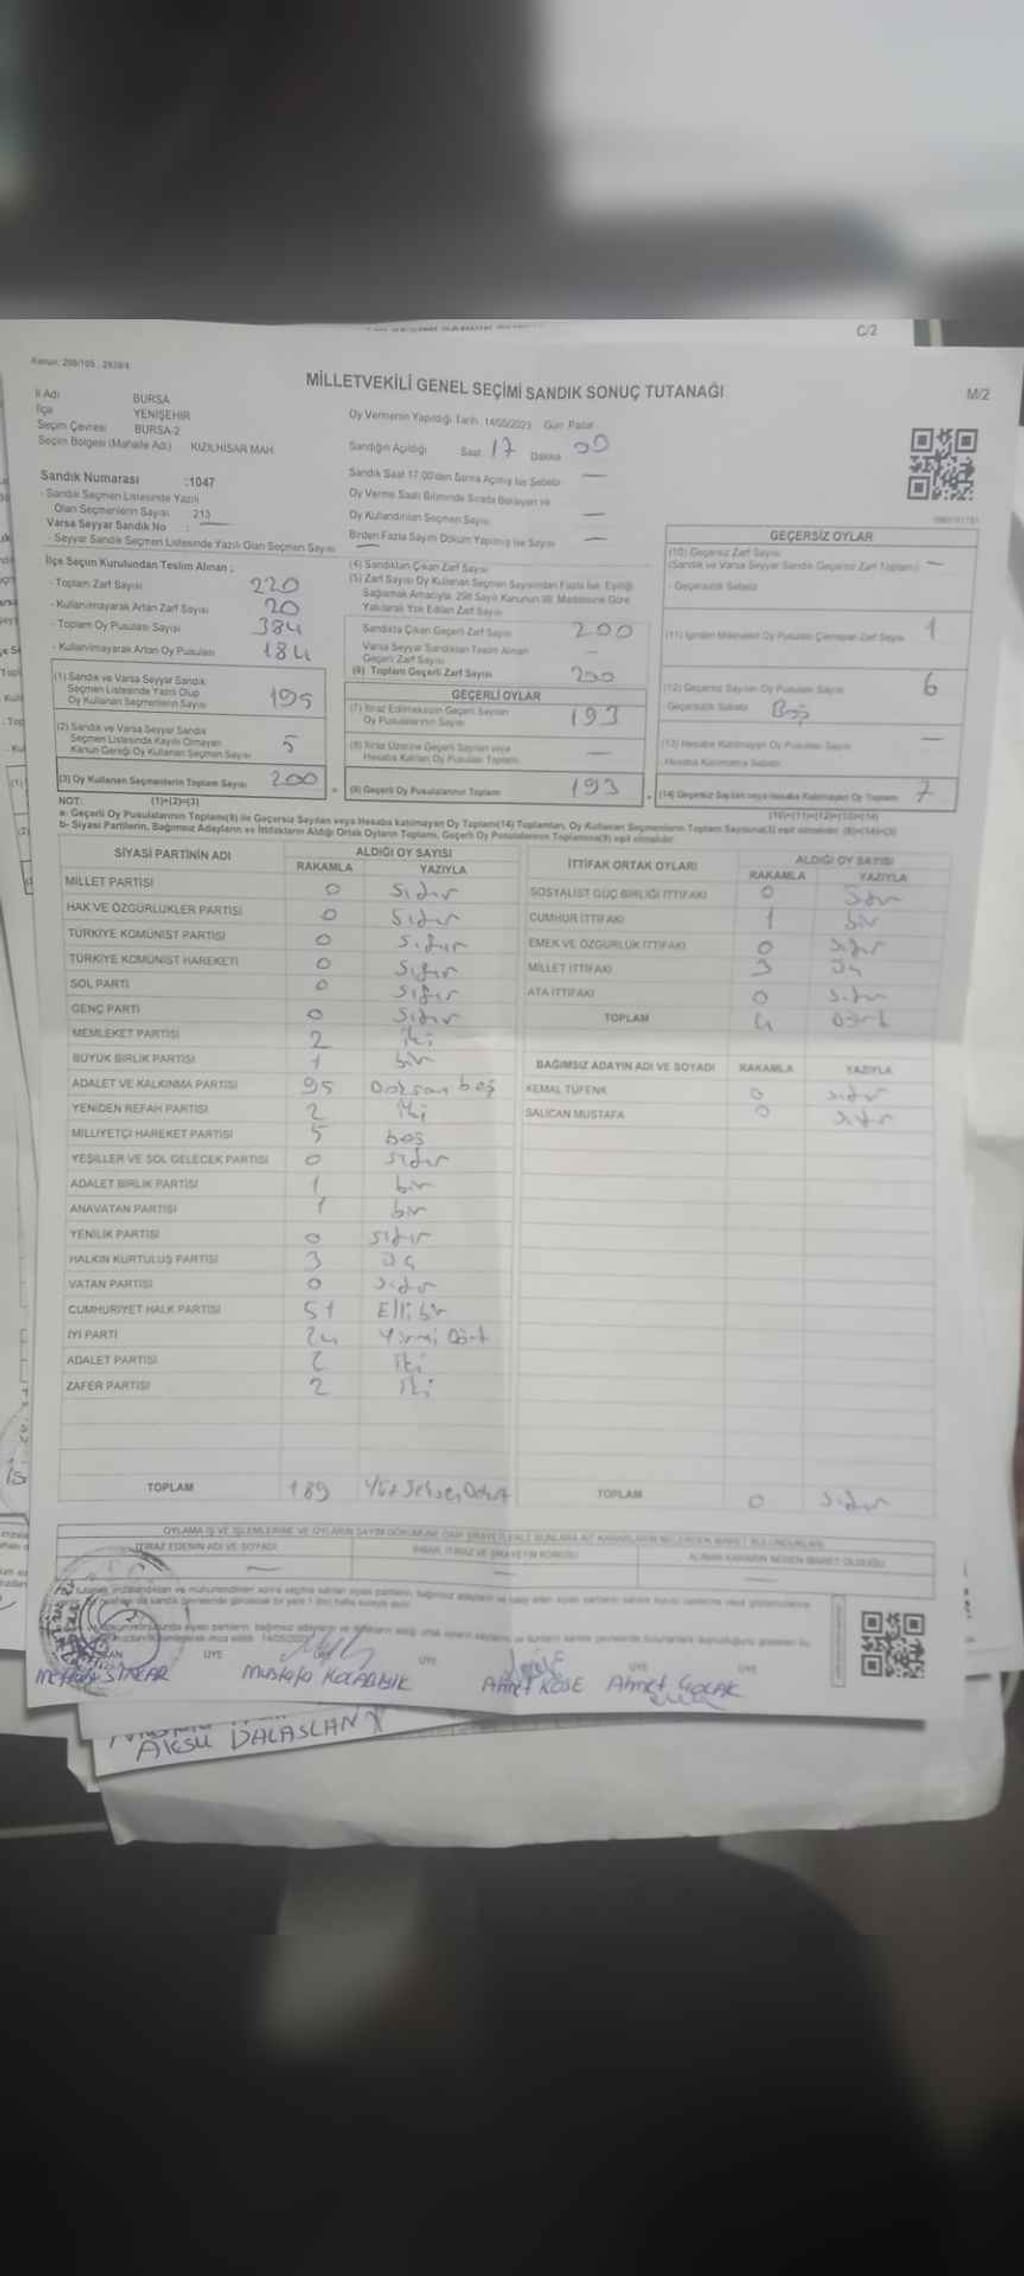 C/2
MİLLETVEKİLİ GENEL SEÇİMİ SANDIK SONUÇ TUTANAĞI
M/2
İl Adı BURSA
İlçe YENİŞEHİR
Seçim Çevresi BURSA-2
Seçim Bölgesi (Mahalle Adı) KIZILHİSAR MAH.
Oy Vermenin Yapıldığı Tarih 14/05/2023 Gün Pazar
Sandığın Açıldığı Saat 17 Dakika 00
Sandık Saat 17.00'den Sonra Açılmış İse Sebebi
Oy Verme Saati Bitiminde Sırada Bekleyen ve
Oy Kullandırılan Seçmen Sayısı
Birden Fazla Sayım Döküm Yapılmış İse Sayısı
Sandık Numarası :1047
- Sandık Seçmen Listesinde Yazılı
Olan Seçmenlerin Sayısı 213
Varsa Seyyar Sandık No :
- Seyyar Sandık Seçmen Listesinde Yazılı Olan Seçmen Sayısı
İlçe Seçim Kurulundan Teslim Alınan ;
- Toplam Zarf Sayısı 220
- Kullanılmayarak Artan Zarf Sayısı 20
- Toplam Oy Pusulası Sayısı 384
- Kullanılmayarak Artan Oy Pusulası 184
(1) Sandık ve Varsa Seyyar Sandık
Seçmen Listesinde Yazılı Olup
Oy Kullanan Seçmenlerin Sayısı 195
(2) Sandık ve Varsa Seyyar Sandık
Seçmen Listesinde Kayıtlı Olmayan
Kanun Gereği Oy Kullanan Seçmen Sayısı 5
(3) Oy Kullanan Seçmenlerin Toplam Sayısı 200
(4) Sandıktan Çıkan Zarf Sayısı
(5) Zarf Sayısı Oy Kullanan Seçmen Sayısından Fazla İse, Eşitliği
Sağlamak Amacıyla, 298 Sayılı Kanunun 98. Maddesine Göre
Yakılarak Yok Edilen Zarf Sayısı
Sandıkta Çıkan Geçerli Zarf Sayısı 200
Varsa Seyyar Sandıktan Teslim Alınan
Geçerli Zarf Sayısı
(6) Toplam Geçerli Zarf Sayısı 200
GEÇERLİ OYLAR
(7) İtiraz Edilmeksizin Geçerli Sayılan
Oy Pusulalarının Sayısı 193
(8) İtiraz Üzerine Geçerli Sayılan veya
Hesaba Katılan Oy Pusulası Toplamı
(9) Geçerli Oy Pusulalarının Toplamı 193
GEÇERSİZ OYLAR
(10) Geçersiz Zarf Sayısı
(Sandık ve Varsa Seyyar Sandık Geçersiz Zarf Toplamı)
- Geçersizlik Sebebi
(11) İçinden Milletvekili Oy Pusulası Çıkmayan Zarf Sayısı 1
(12) Geçersiz Sayılan Oy Pusulası Sayısı 6
Geçersizlik Sebebi Boş
(13) Hesaba Katılmayan Oy Pusulası Sayısı
Hesaba Katılmama Sebebi
(14) Geçersiz Sayılan veya Hesaba Katılmayan Oy Toplamı 7
NOT: (1)+(2)=(3) (10)+(11)+(12)+(13)=(14)
a- Geçerli Oy Pusulalarının Toplamı(9) ile Geçersiz Sayılan veya Hesaba katılmayan Oy Toplamı(14) Toplamları, Oy Kullanan Seçmenlerin Toplam Sayısına(3) eşit olmalıdır. (9)+(14)=(3)
b- Siyasi Partilerin, Bağımsız Adayların ve İttifakların Aldığı Ortak Oyların Toplamı, Geçerli Oy Pusulalarının Toplamına(9) eşit olmalıdır.
SİYASİ PARTİNİN ADI ALDIĞI OY SAYISI
RAKAMLA YAZIYLA
MİLLET PARTİSİ 0 sıfır
HAK VE ÖZGÜRLÜKLER PARTİSİ 0 sıfır
TÜRKİYE KOMÜNİST PARTİSİ 0 sıfır
TÜRKİYE KOMÜNİST HAREKETİ 0 sıfır
SOL PARTİ 0 sıfır
GENÇ PARTİ 0 sıfır
MEMLEKET PARTİSİ 2 iki
BÜYÜK BİRLİK PARTİSİ 1 bir
ADALET VE KALKINMA PARTİSİ 95 Doksan beş
YENİDEN REFAH PARTİSİ 2 iki
MİLLİYETÇİ HAREKET PARTİSİ 5 beş
YEŞİLLER VE SOL GELECEK PARTİSİ 0 sıfır
ADALET BİRLİK PARTİSİ 1 bir
ANAVATAN PARTİSİ 1 bir
YENİLİK PARTİSİ 0 sıfır
HALKIN KURTULUŞ PARTİSİ 3 üç
VATAN PARTİSİ 0 sıfır
CUMHURİYET HALK PARTİSİ 51 Elli bir
İYİ PARTİ 24 Yirmi Dört
ADALET PARTİSİ 2 iki
ZAFER PARTİSİ 2 iki
TOPLAM 189 Yüz Seksen Dokuz
İTTİFAK ORTAK OYLARI ALDIĞI OY SAYISI
RAKAMLA YAZIYLA
SOSYALİST GÜÇ BİRLİĞİ İTTİFAKI 0 sıfır
CUMHUR İTTİFAKI 1 bir
EMEK VE ÖZGÜRLÜK İTTİFAKI 0 sıfır
MİLLET İTTİFAKI 3 üç
ATA İTTİFAKI 0 sıfır
TOPLAM 4 Dört
BAĞIMSIZ ADAYIN ADI VE SOYADI RAKAMLA YAZIYLA
KEMAL TÜFENK 0 sıfır
SALİCAN MUSTAFA 0 sıfır
TOPLAM 0 sıfır
İTİRAZ EDENİN ADI VE SOYADI
ÜYE ÜYE ÜYE ÜYE
Mustafa KOCABIYIK Ahmet KÖSE Ahmet
AKSU DALASLAN